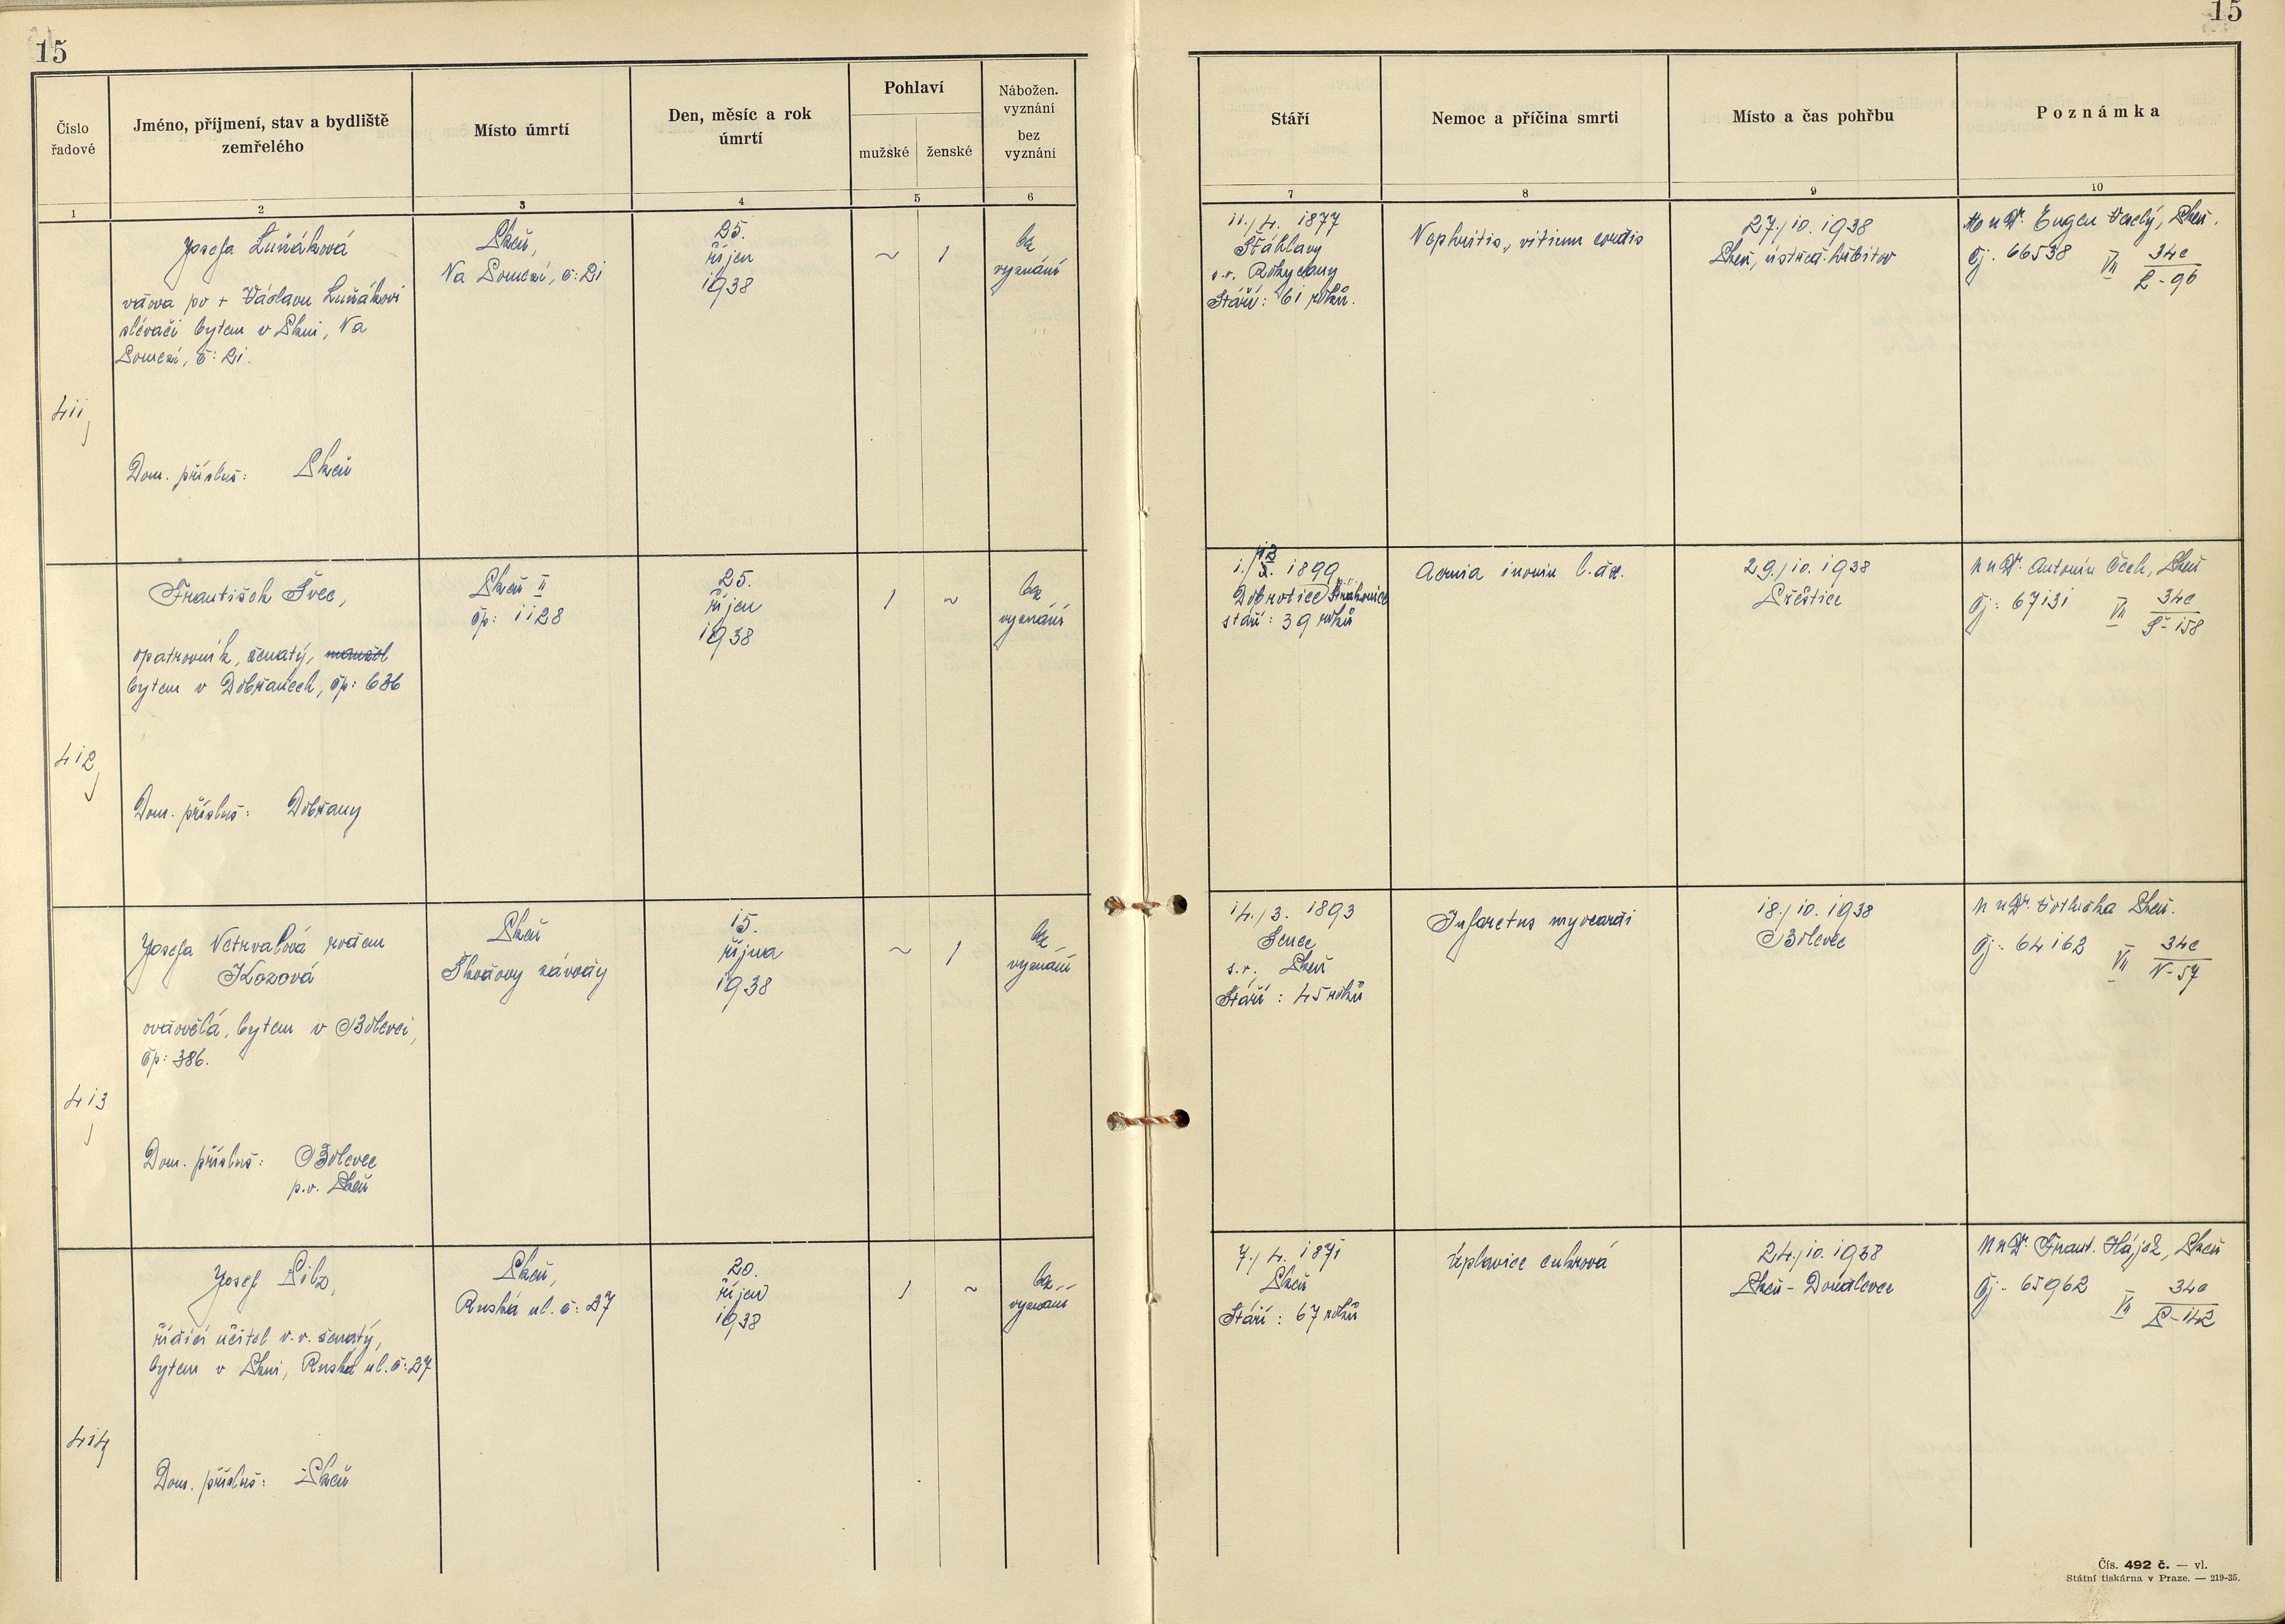 15
15
Číslo
řadové
Jméno, příjmení, stav a bydliště
zemřelého
Místo úmrtí
Den, měsíc a rok
úmrtí
Pohlaví
mužské
ženské
Nábožen.
vyznání
bez
vyznání
Stáří
Nemoc a příčina smrti
Místo a čas pohřbu
Poznámka
1
2
3
4
5
6
7
8
9
10
411
Josefa Luňáková
vdova po + Václavu Luňákovi
slévači bytem v Plzni, Na
Pomezí, č: 21.
Dom. přísluš: Plzeň
Plzeň,
Na Pomezí, č: 21
25.
říjen
1938
~
1
bez
vyznání
11./4. 1877
Štáhlavy
o.r. Rokycany
Stáří: 61 roků.
Nephritis, vitium cordis
27./10. 1938
Plzeň, ústřed. hřbitov
MuDr. Eugen Veselý, Plzeň.
Čj. 66538 VII 34c
L-96
412
František Švec,
opatrovník, ženatý,
bytem v Dobřanech, čp: 636
Dom. přísluš: Dobřany
Plzeň II
čp: 1128
25.
říjen
1938
1
~
bez
vyznání
1./12. 1899
Dobrotice Strakonice
stáří: 39 roků
29./10. 1938
Přeštice
MuDr. Antonín Čech, Plzeň
Čj: 67131 VII 34c
Š-158
413
Josefa Netrvalová rozen
Kozová
ovdovělá, bytem v Bolevci,
čp: 386.
Dom. přísluš: Bolevec
p.o. Plzeň
Plzeň
Škodovy závody
15.
října
1938
~
1
bez
vyznání
14./3. 1893
Senec
s.r. Plzeň
Stáří: 45 roků
Infarctus myocardi
18./10. 1938
Bolevec
MuDr. Plzeň.
Čj. 64162 VII 34c
N-57
414
Josef Pilz,
řídící učitel v.v. ženatý,
bytem v Plzni, Ruská ul. č: 27
Dom. přísluš: Plzeň
Plzeň,
Ruská ul. č: 27
20.
říjen
1938
1
~
bez
vyznání
7./4. 1871
Plzeň
Stáří: 67 roků
Úplavice cukrová
24./10. 1938
Plzeň - Doudlevce
MuDr. Frant. Hájek, Plzeň
Čj. 65962 VII 34c
P-142
Čís. 492 č. — vl.
Státní tiskárna v Praze. — 219-35.